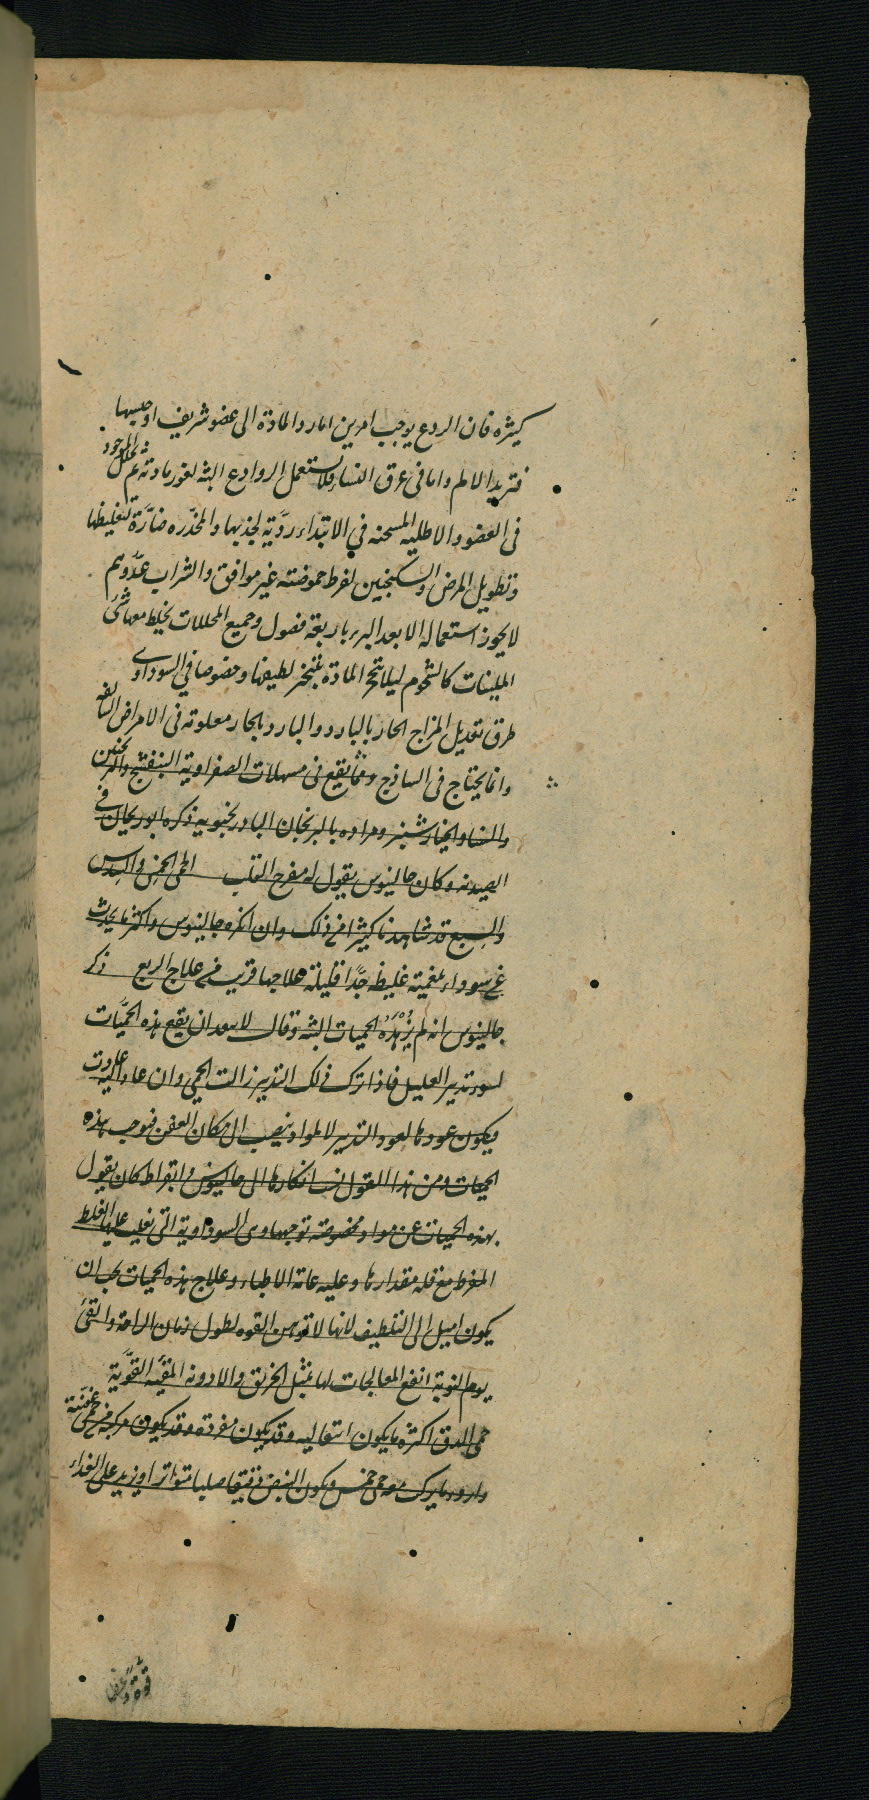 كثيره فان الردع يوجب امرين اما رد المادة الى عضو شريف او حبسها
فتزيد الالم واما فى عرق النساء فلا يستعمل الروادع البته لغور مادته ثم تحلل الموجود
فى العضو والاطليه المسخنه في الابتداء رديّة لجذبها والمخدّره ضارّة لتغليظها
وتطويل المرض والسكنجبين لفرط حموضته غير موافق والشراب عدّوهم
لا يجوز استعماله الا بعد البرء باربعة فصول وجميع المحللات يخلط معها شئ
الملينات كالشحوم ليلا تتحجر المادة بتبخر لطيفها وخصوصا في السوداوى
طرق تعديل المزاج الحار بالبارد والبارد بالحار معلومة فى الامراض السالفه
وانما يحتاج فى الساذج ومما يقع فى مسهلات الصفراوية البنفسج والترنجبين
والسنا والخيار شنبر ومراده بالبرنجان البادرنجبويه ذكره ابو ريحان فى
الصيدنه وكان جالينوس يقول له مفرح القلب الحمى الخمس والسدس
والسبع قد شاهدنا كثيرا من ذلك وان انكره جالينوس واكثر ما يحدث
عن سوداء بلغمية غليظه جدّا قليلة علاجها قريب من علاج الربع ذكر
جالينوس انه لم ير هذه الحميات البته وقال لا يبعد ان يقع هذه الحميّات
لسوء تدبير العليل فاذا ترك ذلك التدبير زالت الحمى وان عاد اليه عاودت
فيكون عودها لعود التدبير لا لمواد ينصب الى مكان العفن فيوجب هذه
الحميات ومن هذا القول نسب انكارها الى جالينوس وابقراط كان يقول
بهذه الحميات عن مواد مخصوصة توجبها وهى السوداوية التى يغلب عليها الغلظ
المفرط مع قلة مقدارها وعليه عامة الاطباء وعلاج هذه الحميات يجب ان
يكون اميل الى التلطيف لانها لا توهن القوه لطول زمان الراحة والقئ
يوم النوبة انفع المعالجات لها بمثل الخربق والادوية المقيّه القويّة
حمى الدق اكثر ما يكون انتقاليه وقد يكون مفردة وقد يكون مركبة مع حمى عفنيّة
واردء ما يركب مع حمى خمس ويكون النبض دقيقا صلبا متواترا ويزيد على الغذاء
قوة و